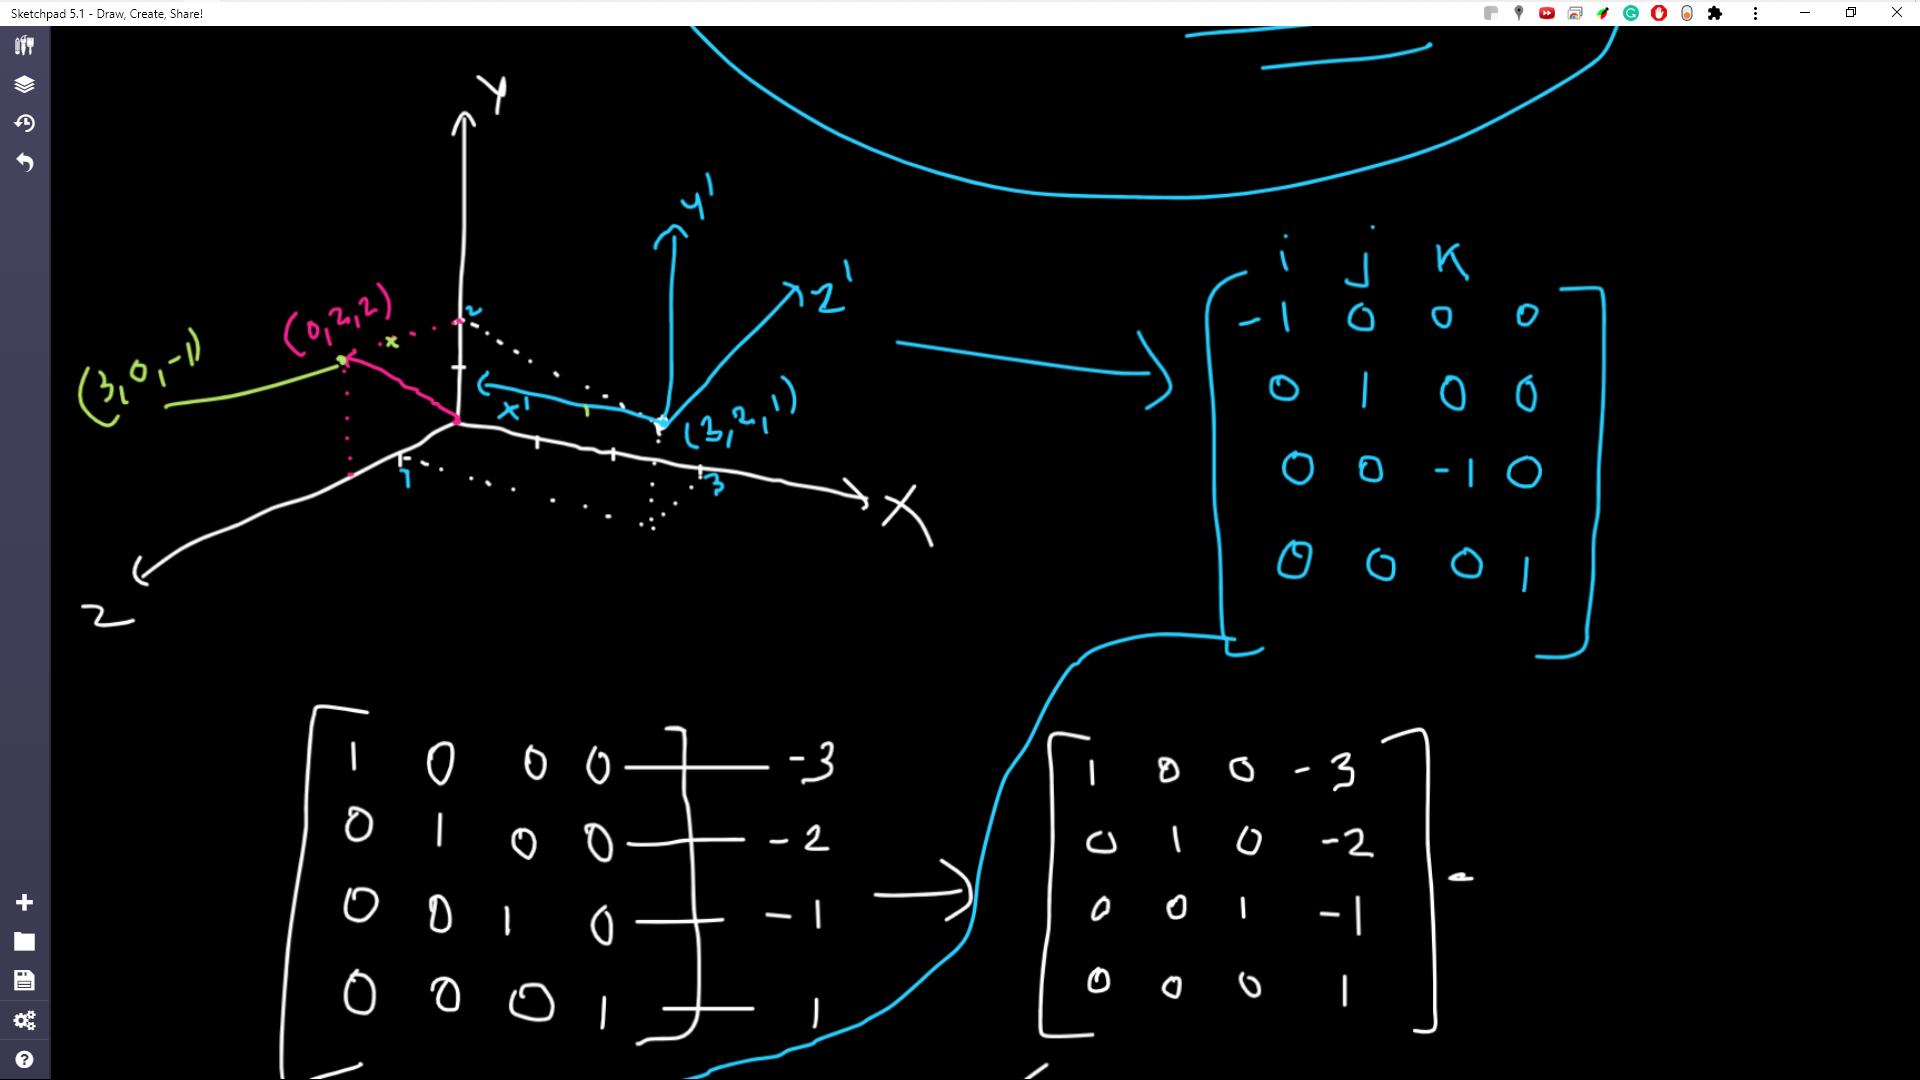 Sketchpad 5.1 - Draw, Create, Share!
Y
y'
z'
(0,2,2)
2
x
(3,0,-1)
x'
1
(3,2,1)
1
3
X
Z
i j k
-1 0 0 0
0 1 0 0
0 0 -1 0
0 0 0 1
1 0 0 0 -3
0 1 0 0 -2
0 0 1 0 -1
0 0 0 1 1
1 0 0 -3
0 1 0 -2
0 0 1 -1
0 0 0 1